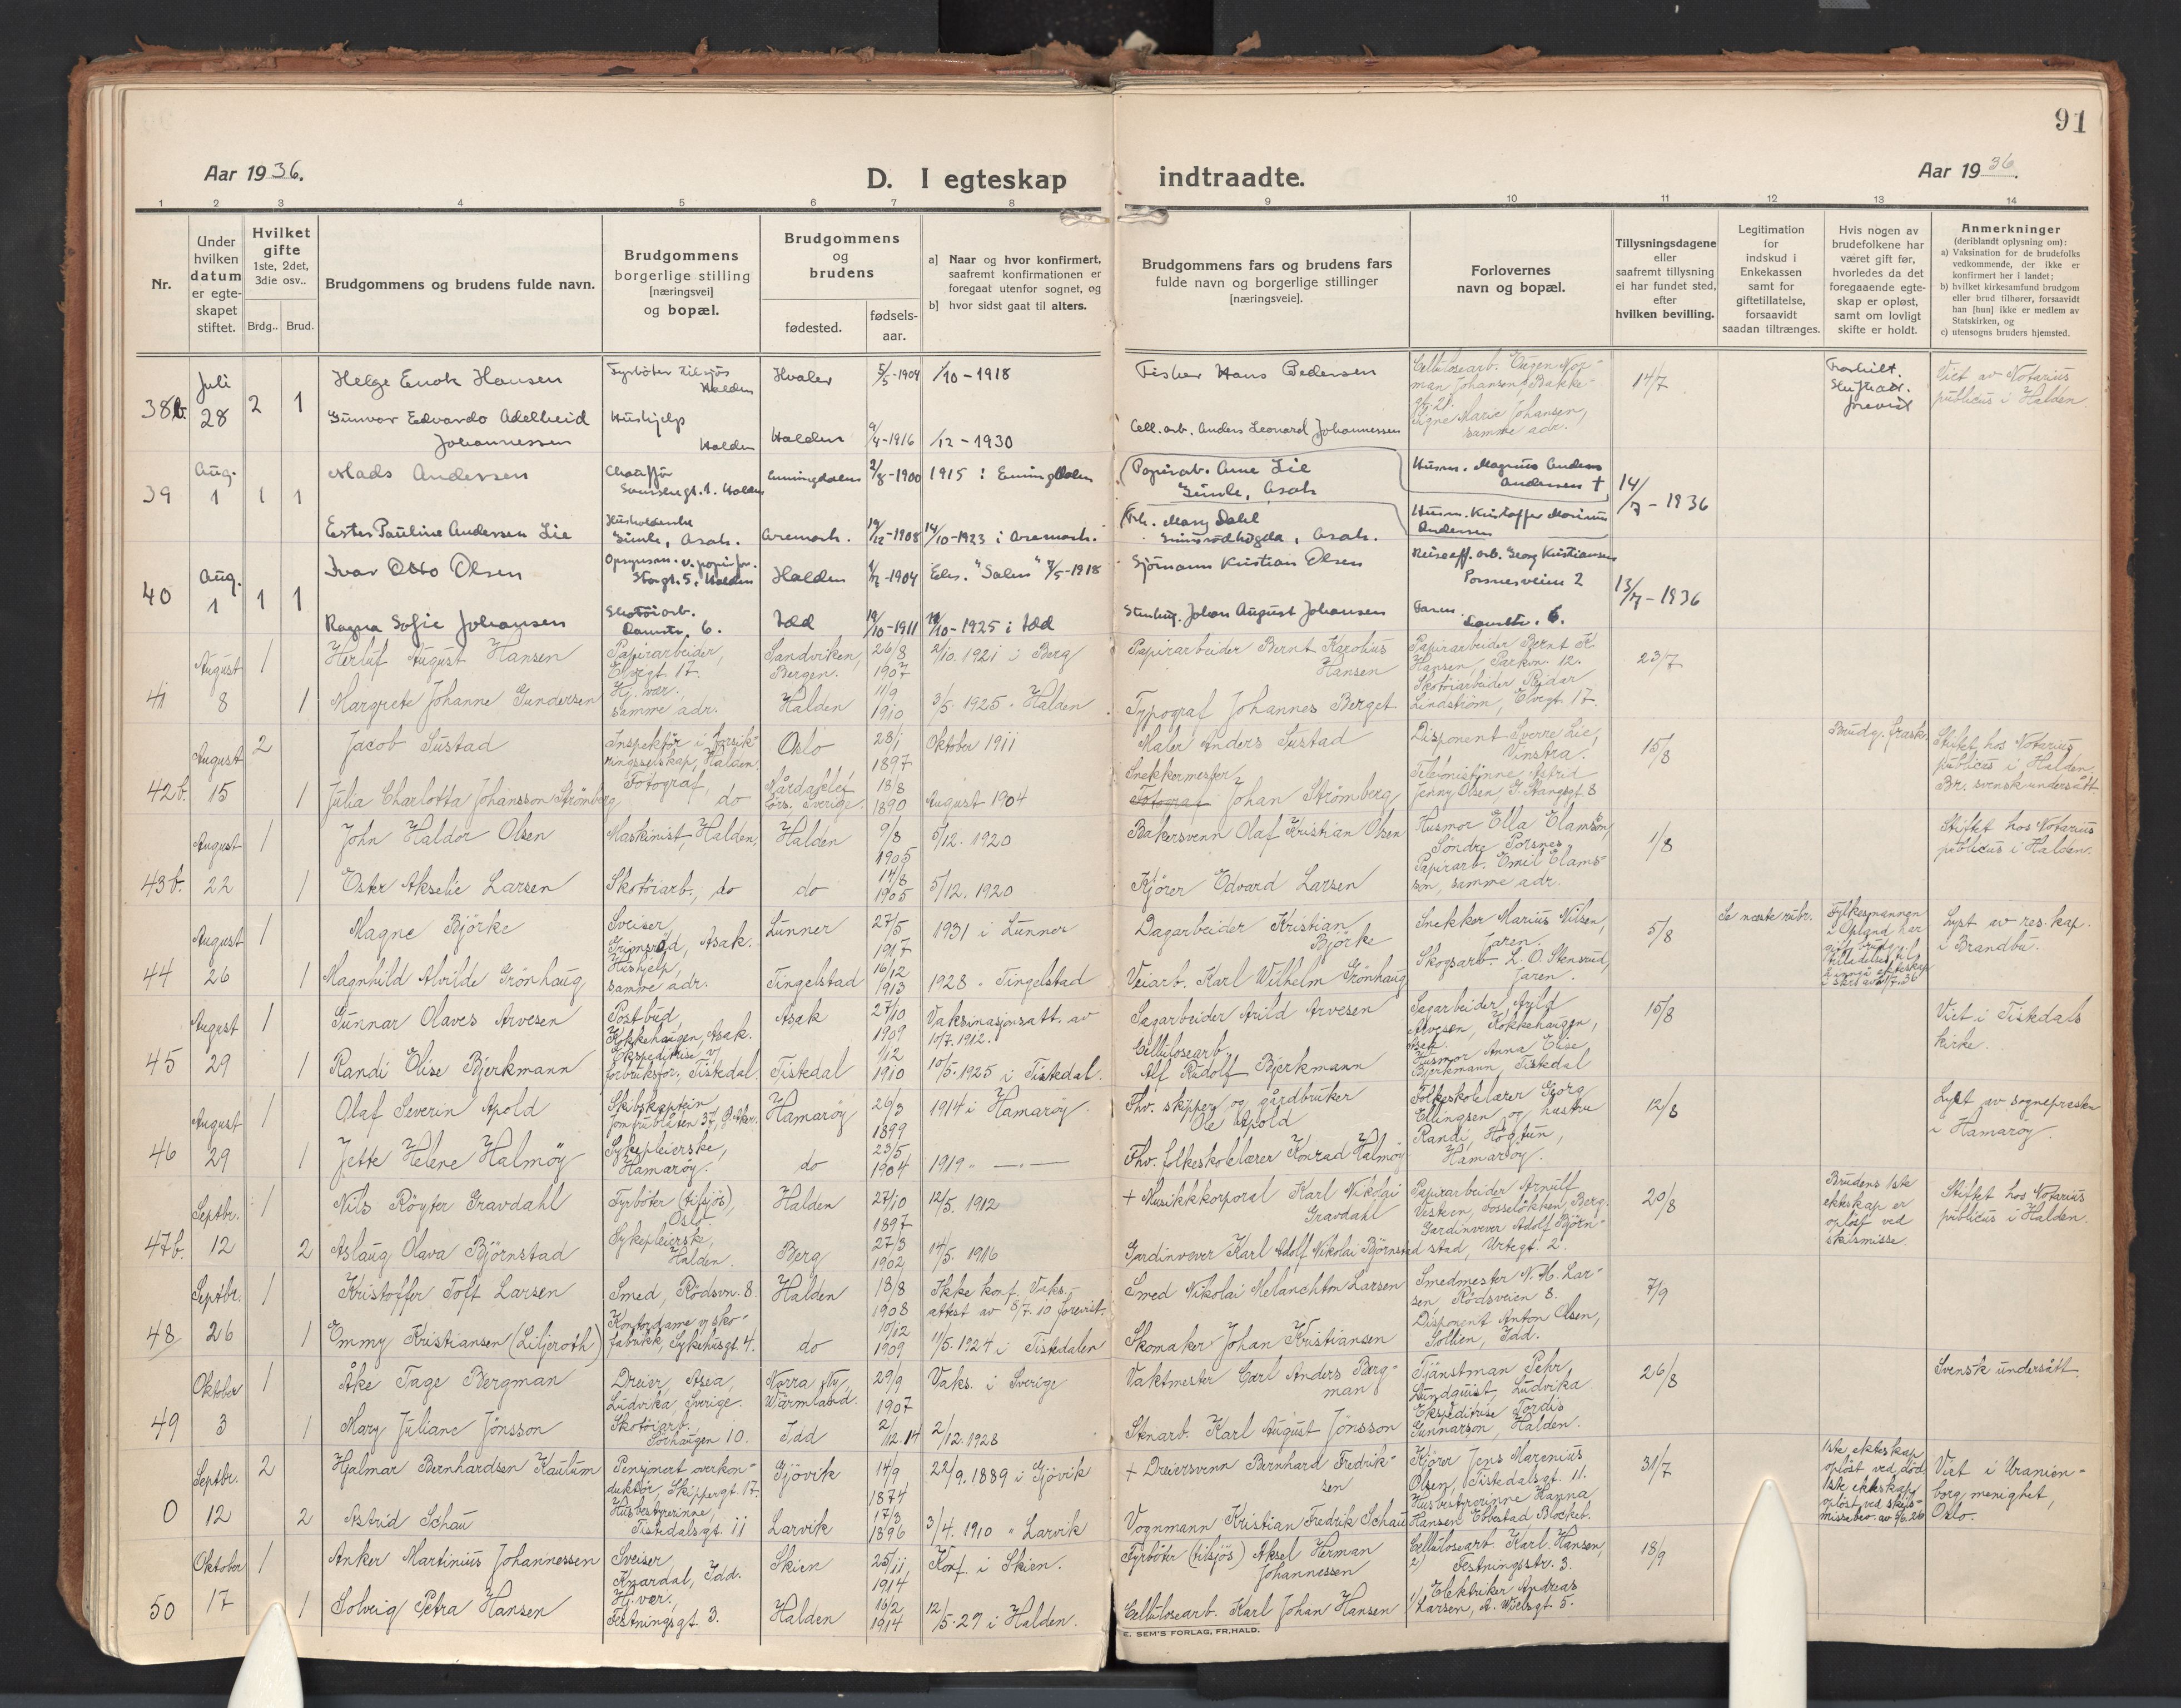 91
Aar 1936.
D. I egteskap indtraadte.
Aar 1936.
1 2 3 4 5 6 7 8 9 10 11 12 13 14
Nr.
Under hvilken datum er egteskapet stiftet.
Hvilket gifte 1ste, 2det, 3die osv..
Brdg.. Brud.
Brudgommens og brudens fulde navn.
Brudgommens borgerlige stilling [næringsvei] og bopæl.
Brudgommens og brudens
fødested.
fødselsaar.
a] Naar og hvor konfirmert, saafremt konfirmationen er foregaat utenfor sognet, og
b] hvor sidst gaat til alters.
Brudgommens fars og brudens fars fulde navn og borgerlige stillinger [næringsveie].
Forlovernes navn og bopæl.
Tillysningsdagene eller saafremt tillysning ei har fundet sted, efter hvilken bevilling.
Legitimation for indskud i Enkekassen samt for giftetillatelse, forsaavidt saadan tiltrænges.
Hvis nogen av brudefolkene har været gift før, hvorledes da det foregaaende egteskap er opløst, samt om lovligt skifte er holdt.
Anmerkninger (deriblandt oplysning om):
a) Vaksination for de brudefolks vedkommende, der ikke er konfirmert her i landet;
b) hvilket kirkesamfund brudgom eller brud tilhører, forsaavidt han [hun] ikke er medlem av Statskirken, og
c) utensogns bruders hjemsted.
38b. Juli 28 2 1
Helge Enok Hansen Fyrbøter tilsjøs Halden Hvaler 5/5-1904 1/10-1918 Fisker Hans Pedersen
Cellulosearb. Eugen Norman Johansen, Bakkegt. 21. Signe Marie Johansen, samme adr. 14/7
Fraskilt. Skifteatt. forevist
Viet av Notarius publicus i Halden
Gunvor Edvarda Adelheid Johannessen Hushjelp Halden Halden 9/4-1916 1/12-1930 Cell. arb. Anders Leonard Johannessen
39 Aug. 1 1 1
Mads Andersen Chauffør Halden Enningdalen 2/8-1900 1915 i Enningdalen
Papirarb. Arne Lie Gimle, Asak
Husm. Magnus Anders Andersen †
14/7-1936
Ester Pauline Andersen Lie Husholderske Gimle, Asak. Aremark. 19/12-1908 14/10-1923 i Aremark.
Frk. Mary Dahl Grimsrødhøgda, Asak.
Husm. Kristoffer Marinus Andersen
40 Aug. 1 1 1
Ivar Otto Olsen Opsynsm. v. papirfor. Storgt. 5, Halden Halden 1904 Eben. "Salem" 1918 Sjømann Kristian Olsen
Reiseeff. arb. Georg Kristiansen Porsnesveien 2
13/7-1936
Ragna Sofie Johansen Skotøiarb. Damstr. 6. Idd 19/10-1911 1925 i Idd Stenhug. Johan August Johansen Faren. Damstr. 6.
41 August 8 1 1
Herluf August Hansen Papirarbeider, Elvegt. 17. Sandviken, Bergen. 26/8 1907 2/10. 1921 i Berg
Papirarbeider Bernt Karolius Hansen
Papirarbeider Bernt K. Hansen, Parkvn. 12. Skotøiarbeider Reidar Lindstrøm, Elvegt. 17.
23/7
Margrete Johanne Gundersen Hj. vær. samme adr. Halden 11/9 1910 3/5. 1925 " Halden Typograf Johannes Berget
42b. August 15 2 1
Jacob Sustad Inspektør i forsikringsselskap, Halden. Oslo 28/1 1897 Oktober 1911 Maler Anders Sustad
Disponent Sverre Lie, Vinstra. Telefonistinne Astrid Jenny Olsen, G. Stangsgt. 8
15/8
Brudg. frask.
Stiftet hos Notarius publicus i Halden. Br. svensk undersått
Julia Charlotta Johansson Strömberg Fotograf, do Sverige. 18/8 1890 August 1904 Snekkermester Johan Strömberg
43b. August 22 1 1
John Haldor Olsen Maskinist, Halden, Halden 9/8 1905 5/12. 1920 Bakersvenn Olaf Kristian Olsen
Husmor Ella Elamson, Søndre Porsnes, Papirarb. Emil Elamsson, samme adr.
1/8
Stiftet hos Notarius publicus i Halden.
Ester Akselie Larsen Skotøiarb., do do 14/8 1905 5/12. 1920 Kjører Edvard Larsen
44 August 26 1 1
Magne Bjørke Sveiser, Grimsrød, Asak. Lunner 27/5 1917 1931 i Lunner
Dagarbeider Kristian Bjørke
Snekker Marius Nilsen, Jaren. Skogsarb. L. O. Stensrud, Jaren.
5/8
Se næste rubr.
Fylkesmannen i Opland har gitt brudg. tilladelse til å inngå ekteskap i skriv av 21/7-36
Lyst av res. kap. i Brandbu.
Magnhild Alvilde Grønhaug Hushjelp, samme adr. Tingelstad 16/12 1913 1928 " Tingelstad Veiarb. Karl Wilhelm Grønhaug
45 August 29 1 1
Gunnar Olaves Arvesen Postbud, Kokkehaugen, Asak. Asak 27/10 1909 Vaksinasjonsatt. av 10/7. 1912. Sagarbeider Arild Arvesen
Sagarbeider Arild Arvesen, Kokkehaugen, Asak. Husmor Anna Elise Bjerkmann, Tistedal
15/8
Viet i Tistedals kirke.
Randi Elise Bjerkmann Ekspeditrise v/ forbruksfor., Tistedal. Tistedal 1/12 1910 10/5. 1925 i Tistedal. Cellulosearb. Alf Rudolf Bjerkmann
46 August 29 1 1
Olaf Severin Apold Skibskaptein, Jomfrubråten 37, Ø. Aker. Hamarøy 26/3 1899 1914 i Hamarøy.
Fhv. skipper og gårdbruker Ole Apold
Folkeskolelærer Georg Ellingsen og hustru Randi, Høgtun, Hamarøy.
12/8
Lyst av sogneprestn i Hamarøy.
Jette Helene Halmøy Sykepleierske, Hamarøy. do 23/5 1904 1919 " —"— Fhv. folkeskolelærer Konrad Halmøy
47b. Septbr. 12 1 2
Nils Røyter Gravdahl Fyrbøter (tilsjøs), Oslo. Halden 27/10 1897 12/5. 1912
+ Musikkkorporal Karl Nikolai Gravdahl
Papirarbeider Arnulf Vestern, Fosseløkken, Berg. Gardinvever Adolf Bjørnstad, Urtegt. 2.
20/8
Brudens 1ste ekteskap er opløst ved skilsmisse.
Stiftet hos Notarius publicus i Halden.
Aslaug Olava Bjørnstad Sykepleierske, Halden. Berg 27/3 1902 14/5. 1916 Gardinvever Karl Adolf Nikolai Bjørnstad
48 Septbr. 26 1 1
Kristoffer Toft Larsen Smed, Rødsvn. 8. Halden 18/8 1908 Ikke konf. Vaks. attest av 8/7. 10 forevist.
Smed Nikolai Melanchton Larsen
Smedmester N. M. Larsen, Rødsveien 8. Disponent Anton Olsen, Sollien, Idd.
7/9
Emmy Kristiansen (Liljeroth) Kontordame v/ skofabrikk, Sykehusgt. 4. do 10/12 1909 11/5. 1924 i Tistedalen Skomaker Johan Kristiansen
49 Oktober 3 1 1
Åke Tage Bergman Dreier, Asea, Ludvika, Sverige. Norra Ny, Wärmland. 29/9 1907 Vaks. i Sverige
Vaktmester Carl Anders Bergman
Tjänstman Pehr Lundquist, Ludvika. Ekspeditrise Tordis Gunnarson, Halden.
26/8
Svensk undersått.
Mary Juliane Jönsson Skotøiarb. Sørhaugen 10. Idd 2/12.14 2/12. 1928 Stenarb. Karl August Jönsson
0 Septbr. 12 2 2
Hjalmar Bernhardsen Kautum Pensjonert overkonduktør, Skippergt. 17. Gjøvik 14/9 1874 22/9. 1889 i Gjøvik
+ Dreiersvenn Bernhard Fredriksen
Kjører Jens Marenius Olsen, Tistedalsgt. 11. Husbestyrerinne Hanna Hansen
31/7
1ste ekteskap opløst ved død 1ste ekteskap opløst ved skilsmissebev. av 9/6. 26
Viet i Uranienborg menighet, Oslo.
Astrid Schau Husbestyrerinne, Tistedalsgt. 11 Larvik 17/3 1896 3/4. 1910 " Larvik Vognmann Kristian Fredrik Schau
50 Oktober 17 1 1
Anker Martinius Johannessen Sveiser, Knardal, Idd. Skien 25/11 1914 Konf. i Skien.
Fyrbøter (tilsjøs) Aksel Herman Johannessen
Cellulosearb. Karl Hansen, 2) Festningsstr. 3. 1) Elektriker Andreas Larsen, A. Wielsgt. 5.
18/9
Solveig Petra Hansen Hj. vær. Festningsgt. 3. Halden 16/2 1914 12/5-29 i Halden. Cellulosearb. Karl Johan Hansen
E. SEM'S FORLAG, FR.HALD.